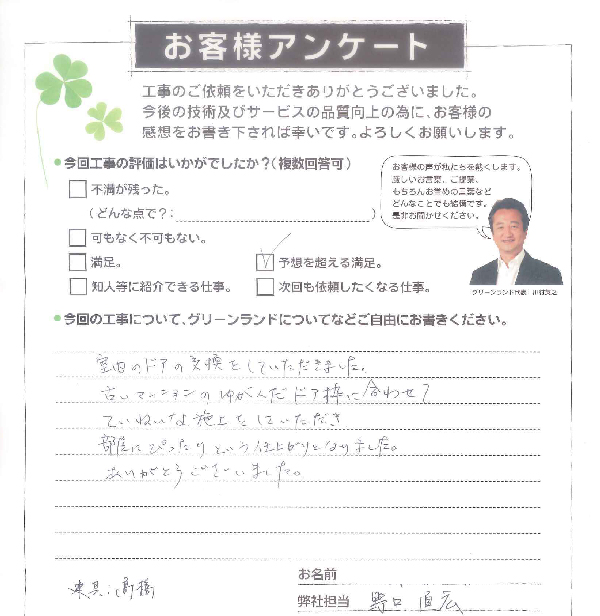 お客様アンケート
工事のご依頼をいただきありがとうございました。
今後の技術及びサービスの品質向上の為に、お客様の
感想をお書き下されば幸いです。よろしくお願いします。
●今回工事の評価はいかがでしたか？（複数回答可）
不満が残った。
（どんな点で？：　）
可もなく不可もない。
満足。
予想を超える満足。
知人等に紹介できる仕事。
次回も依頼したくなる仕事。
お客様の声が私たちを熱くします。
厳しいお言葉、ご提案、
もちろんお誉めの言葉など
どんなことでも結構です。
是非お聞かせください。
グリーンランド代表
●今回の工事について、グリーンランドについてなどご自由にお書きください。
室内のドアの交換をしていただきました。
古いマンションのゆがんだドア枠に合わせて
ていねいな施工をしていただき
部屋にぴったりという仕上がりとなりました。
ありがとうございました。
建具:
お名前
弊社担当 野口 直宏